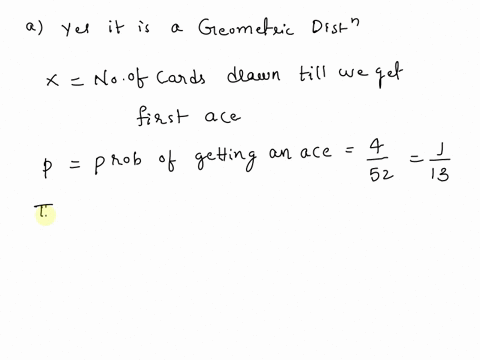 a) Yes it is a Geometric Distⁿ
X = No. of Cards drawn till we get
first ace
p = prob of getting an ace = 4/52 = 1/13